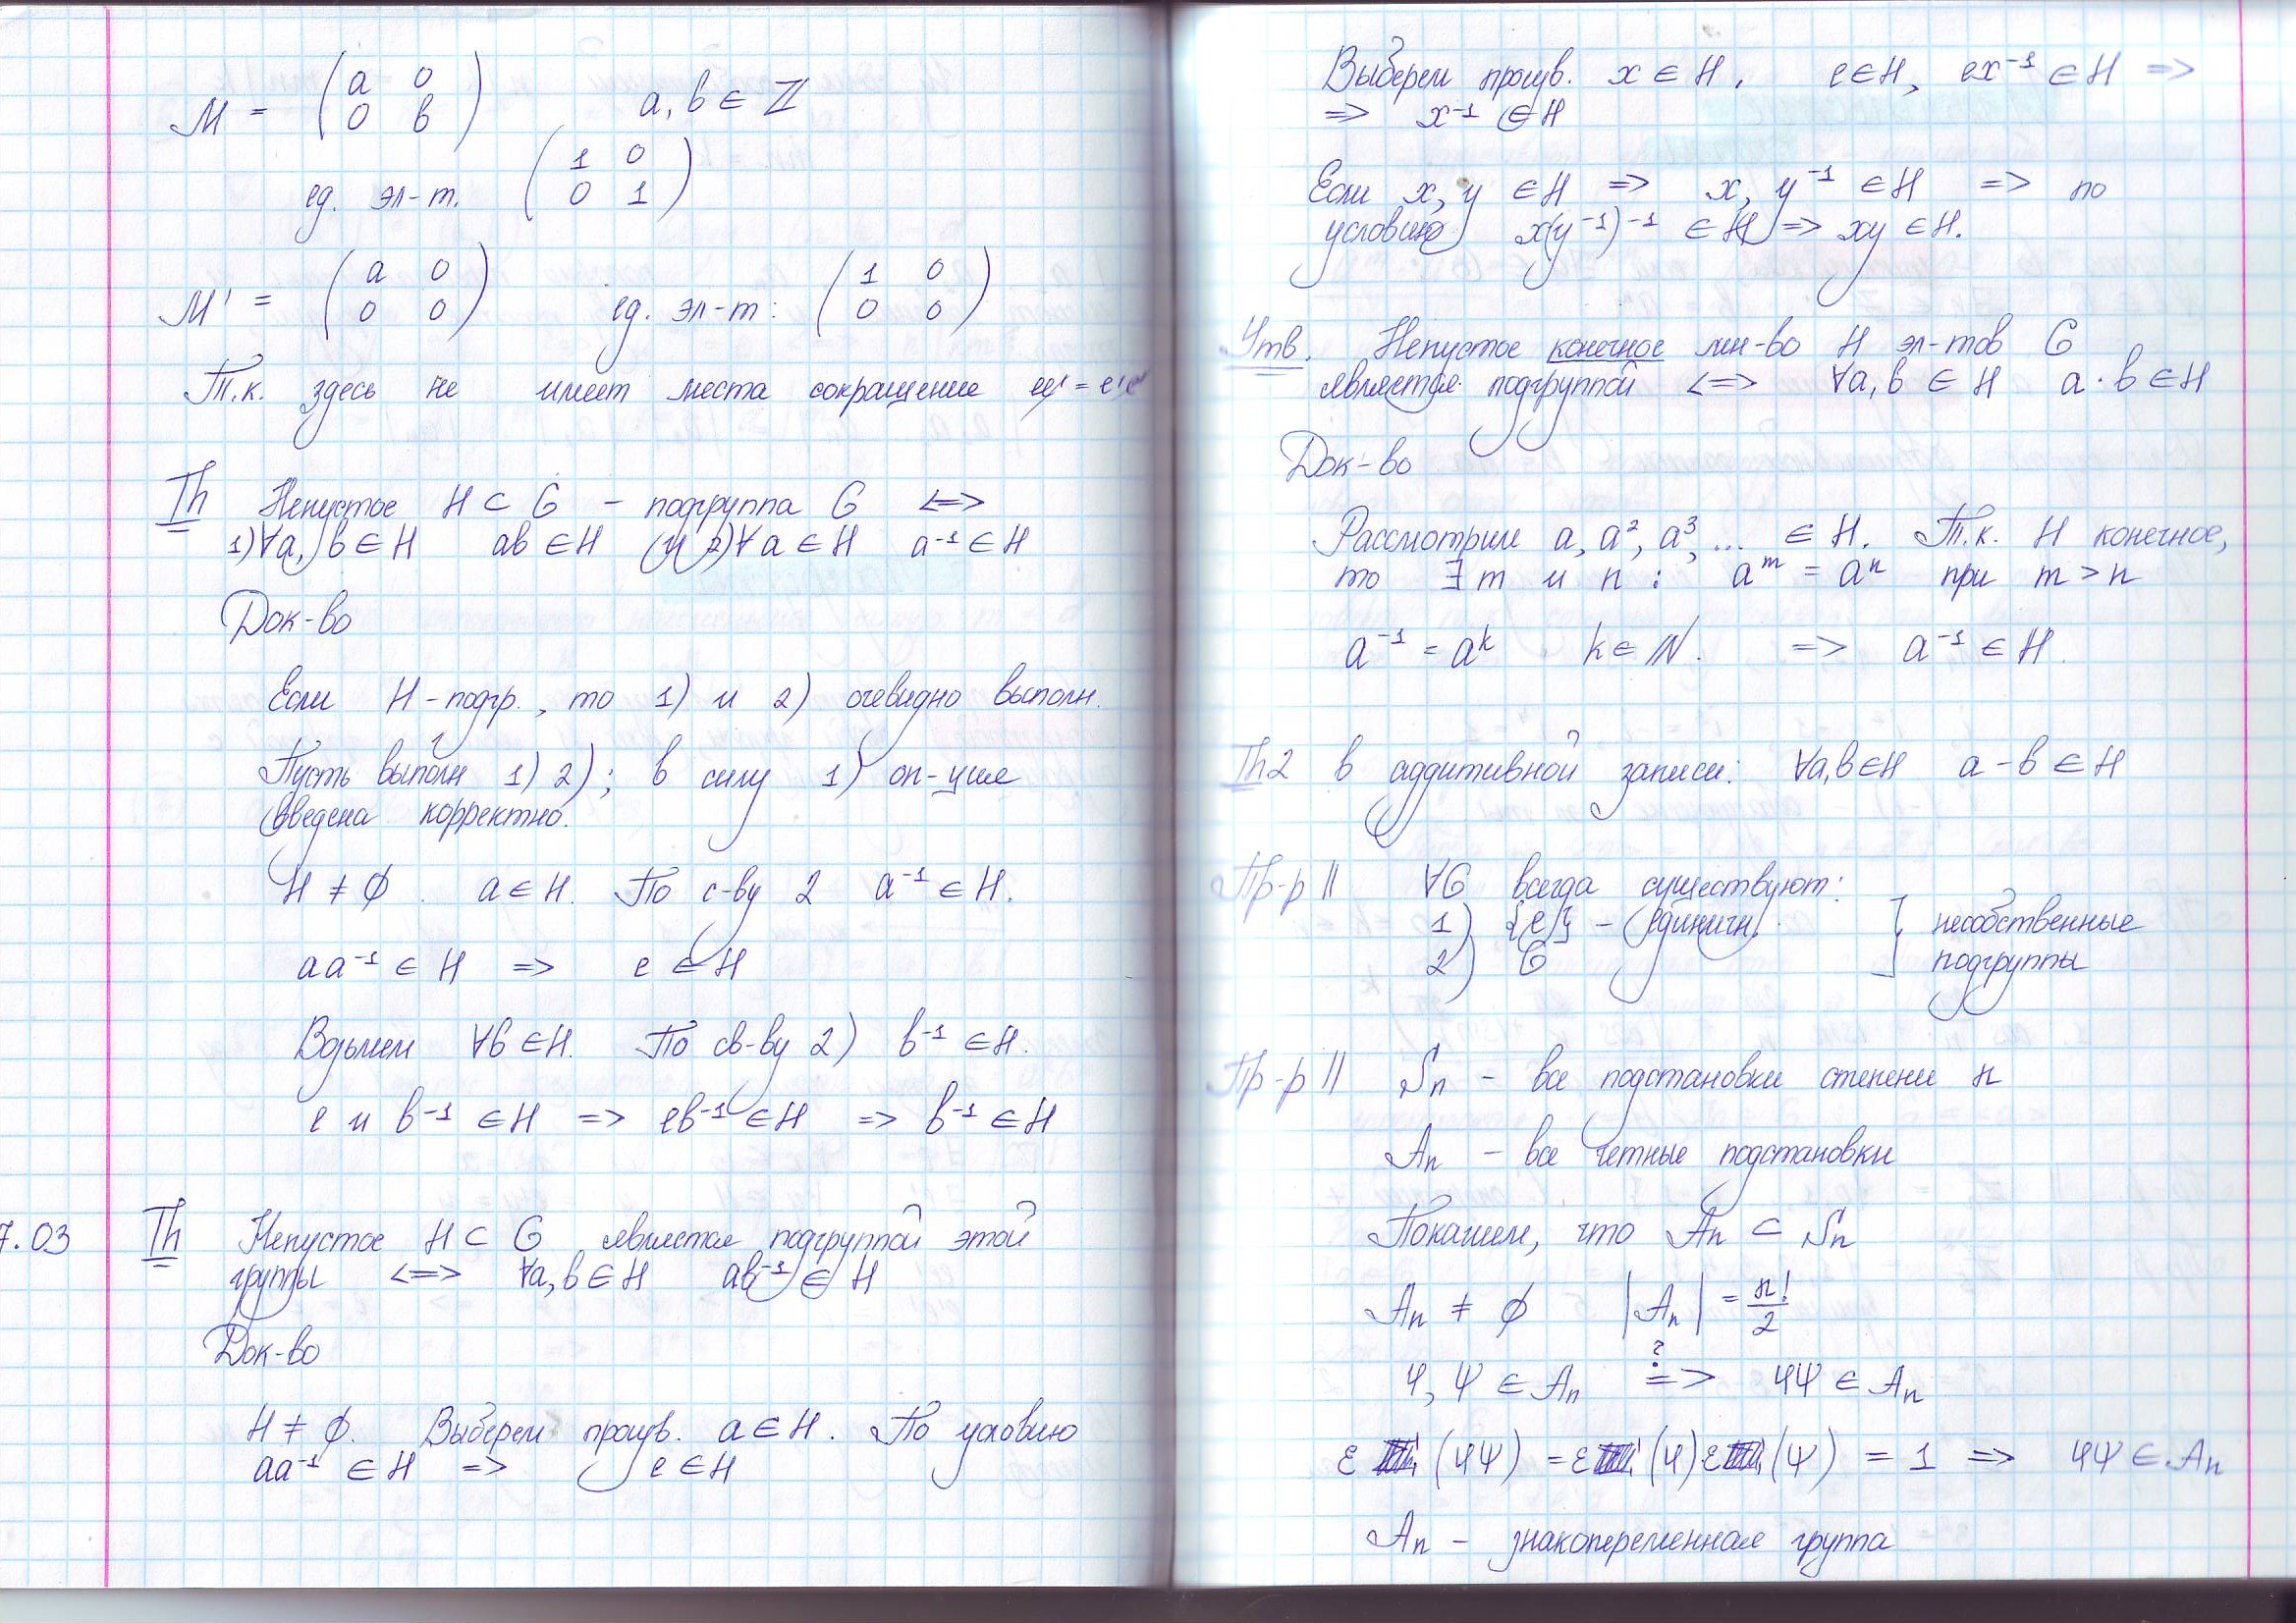 M = ( a 0 ; 0 b )   a, b ∈ ℤ
ед. эл-т. ( 1 0 ; 0 1 )
M' = ( a 0 ; 0 0 )   ед. эл-т: ( 1 0 ; 0 0 )
Т.к. здесь не имеет места сокращение ee' = e'e'
Th Непустое H ⊂ G – подгруппа G <=>
1) ∀a, b ∈ H   ab ∈ H (и 2) ∀a ∈ H   a⁻¹ ∈ H
Док-во
Если H – подгр., то 1) и 2) очевидно выполн.
Пусть выполн 1) 2); в силу 1) оп-ция
введена корректно.
H ≠ ∅. a ∈ H. По с-ву 2 a⁻¹ ∈ H.
aa⁻¹ ∈ H => e ∈ H
Возьмем ∀b ∈ H. По св-ву 2) b⁻¹ ∈ H.
e и b⁻¹ ∈ H => eb⁻¹ ∈ H => b⁻¹ ∈ H
7.03 Th Непустое H ⊂ G является подгруппой этой
группы <=> ∀a, b ∈ H   ab⁻¹ ∈ H
Док-во
H ≠ ∅. Выберем произв. a ∈ H. По условию
aa⁻¹ ∈ H => e ∈ H
Выберем произв. x ∈ H. e ∈ H, ex⁻¹ ∈ H =>
=> x⁻¹ ∈ H
Если x, y ∈ H => x, y⁻¹ ∈ H => по
условию x(y⁻¹)⁻¹ ∈ H => xy ∈ H.
Утв. Непустое конечное мн-во H эл-тов G
является подгруппой <=> ∀a, b ∈ H   a · b ∈ H
Док-во
Рассмотрим a, a², a³, ... ∈ H. Т.к. H конечное,
то ∃ m и n : aᵐ = aⁿ при m > n
a⁻¹ = aᵏ   k ∈ ℕ. => a⁻¹ ∈ H.
Th2 в аддитивной записи: ∀a, b ∈ H   a - b ∈ H
Пр-р || ∀G всегда существуют:
1) {e} – единичн. ] несобственные
2) G ] подгруппы
Пр-р || Sₙ – все подстановки степени n
Aₙ – все четные подстановки
Покажем, что Aₙ ⊂ Sₙ
Aₙ ≠ ∅   |Aₙ| = n!/2
φ, ψ ∈ Aₙ ?=> φψ ∈ Aₙ
ε (φψ) = ε (φ) ε (ψ) = 1 => φψ ∈ Aₙ
Aₙ – знакопеременная группа